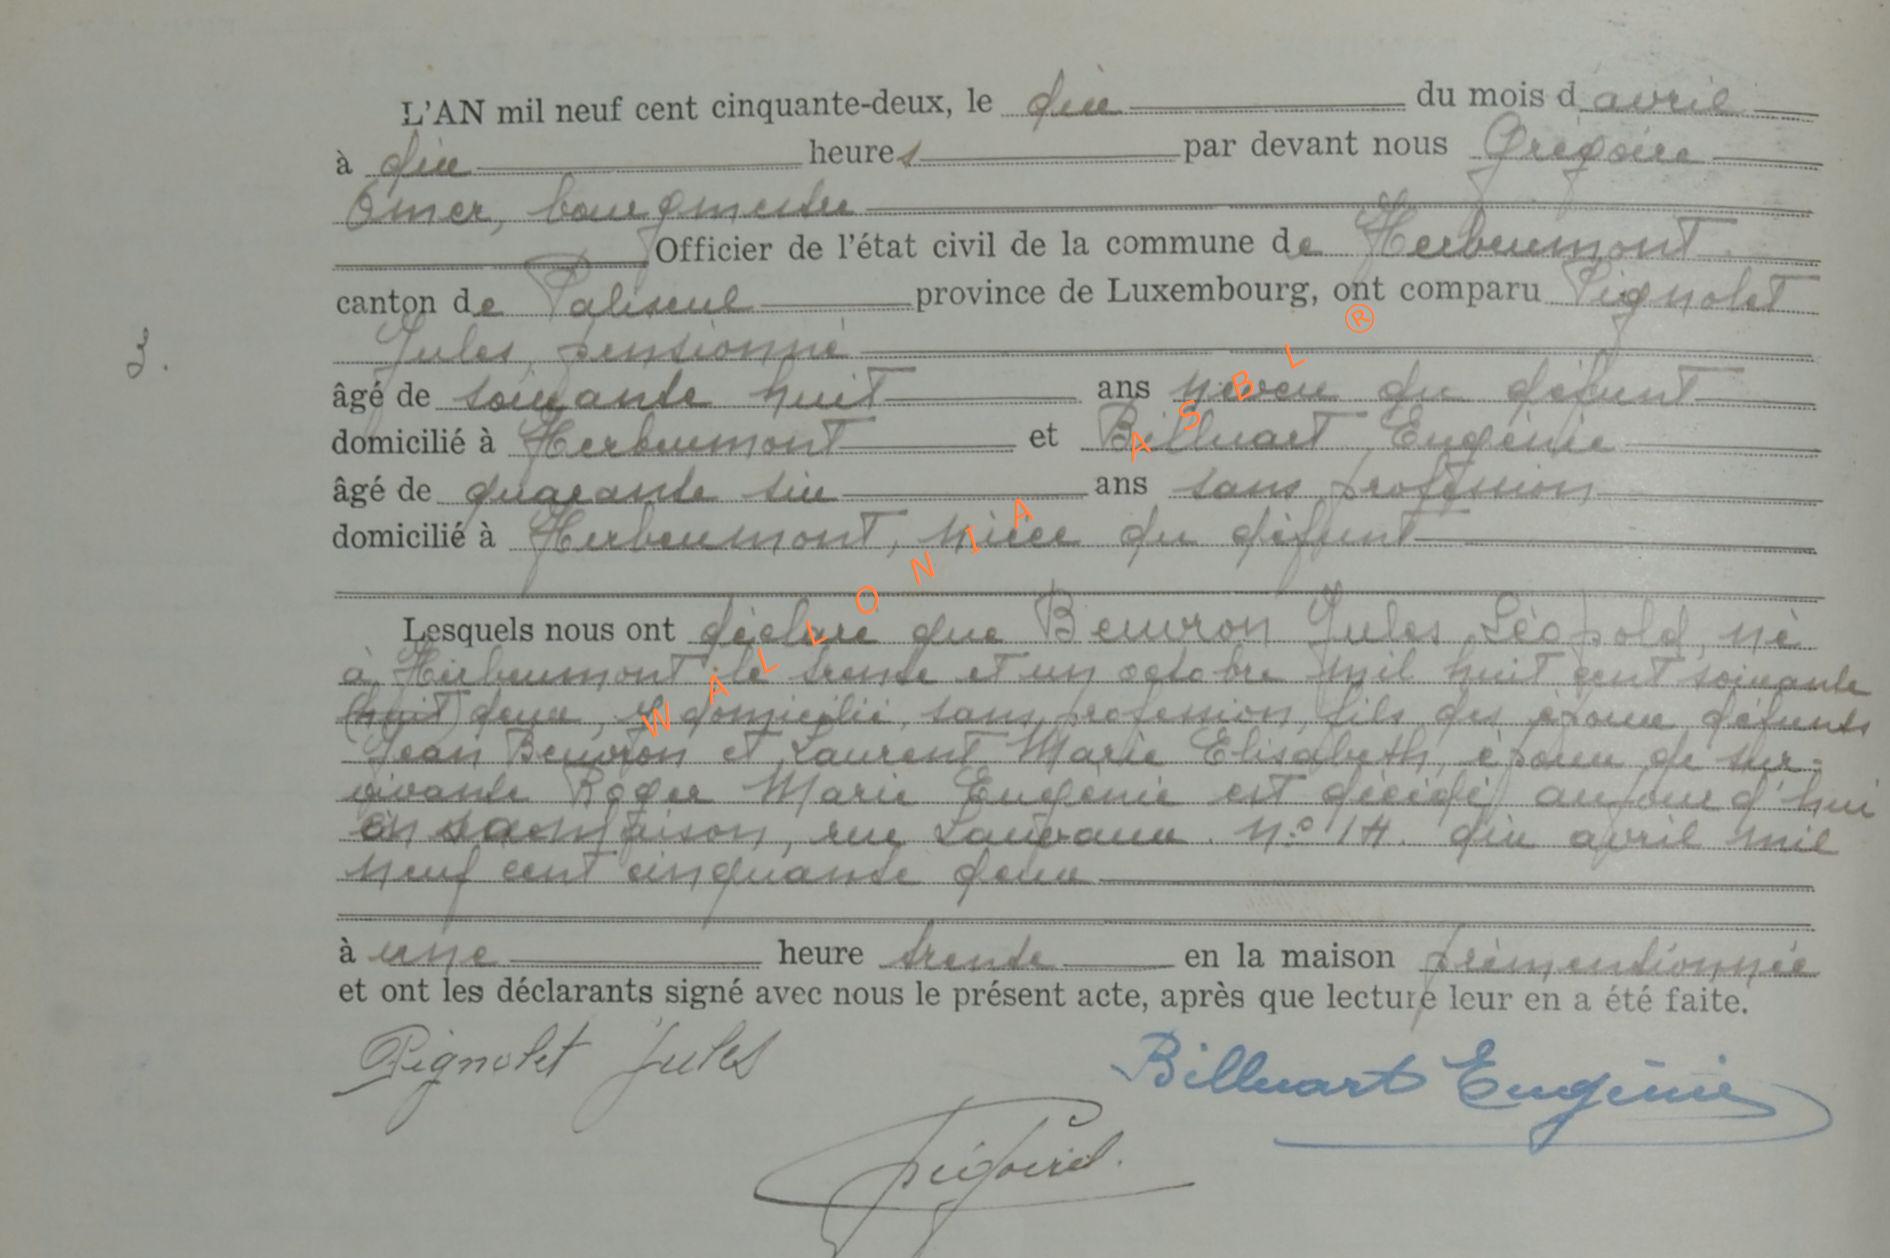 L'AN mil neuf cent cinquante-deux, le dix du mois d avril
à dix heures par devant nous Grégoire
Omer, bourgmestre
Officier de l'état civil de la commune de Herbeumont
canton de Paliseul province de Luxembourg, ont comparu Pignolet
Jules, pensionné
3.
âgé de soixante huit ans neveu du défunt
domicilié à Herbeumont et Billuart Eugénie
âgé de quarante six ans sans profession
domicilié à Herbeumont, nièce du défunt
Lesquels nous ont déclaré que Beuvron Jules Léopold, né
à Herbeumont le trente et un octobre mil huit cent soixante
(huit) deux, y domicilié, sans profession, fils des époux défunts
Jean Beuvron et Laurent Marie Elisabeth, époux de sur-
vivante Roger Marie Eugénie est décédé aujourd'hui
en sa maison, rue Lauvaux. n° 14. dix avril mil
neuf cent cinquante deux
à une heure trente en la maison prémentionnée
et ont les déclarants signé avec nous le présent acte, après que lecture leur en a été faite.
Pignolet Jules
Billuart Eugénie
WALLONIA ASBL ®